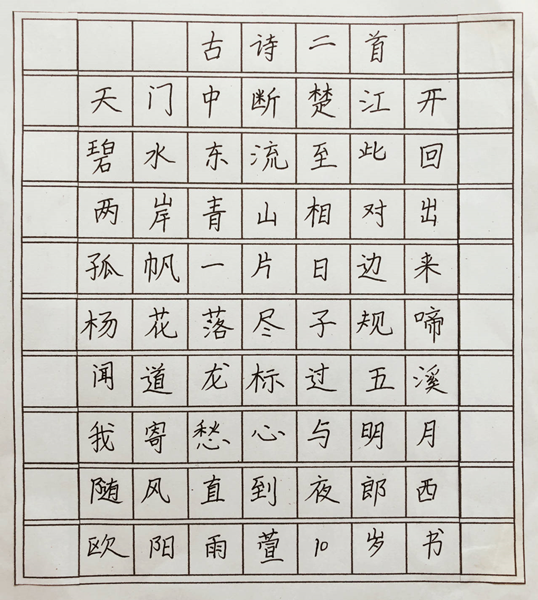 古诗二首
天门中断楚江开
碧水东流至此回
两岸青山相对出
孤帆一片日边来
杨花落尽子规啼
闻道龙标过五溪
我寄愁心与明月
随风直到夜郎西
欧阳雨萱10岁书